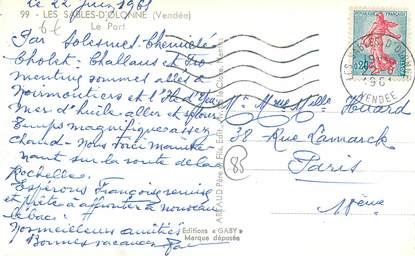 le 22 juin 1961
99 - LES SABLES-D'OLONNE (Vendée)
Le Port
Par Solesmes - Chemillé
Cholet - Challans et
sommes allés à
Noirmoutiers et l'Ile d'Yeu
Mer d'huile aller et retour
Temps magnifique assez
chaud - Nous voici mainte-
nant sur la route de la
Rochelle.
Espérons Françoise remise
et prête à affronter à nouveau
le bac !
Nos meilleures amitiés
Bonnes vacances
ARTAUD Père et Fils, Edit.
Editions "GABY"
Marque déposée
LES SABLES D'OLONNE
VENDEE
0,20
Mr Mme Melle
38 Rue Lamarck
Paris
18ème
85